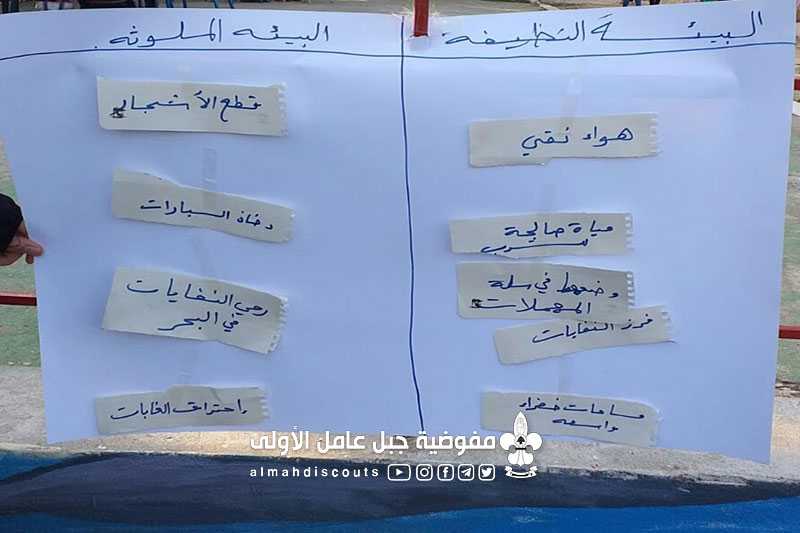 البيئة النظيفة
البيئه الملوثه
هواء نقي
مياة صالحة
للشرب
وضعها في سلة
المهملات
فرز النفايات
مساحات خضراء
واسعه
قطع الأشجار
دخان السيارات
رمي النفايات
في البحر
إحتراق الغابات
مفوضية جبل عامل الأولى
almahdiscouts